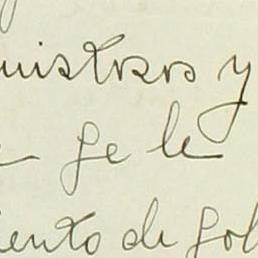 uistros y
se le
iento de gol